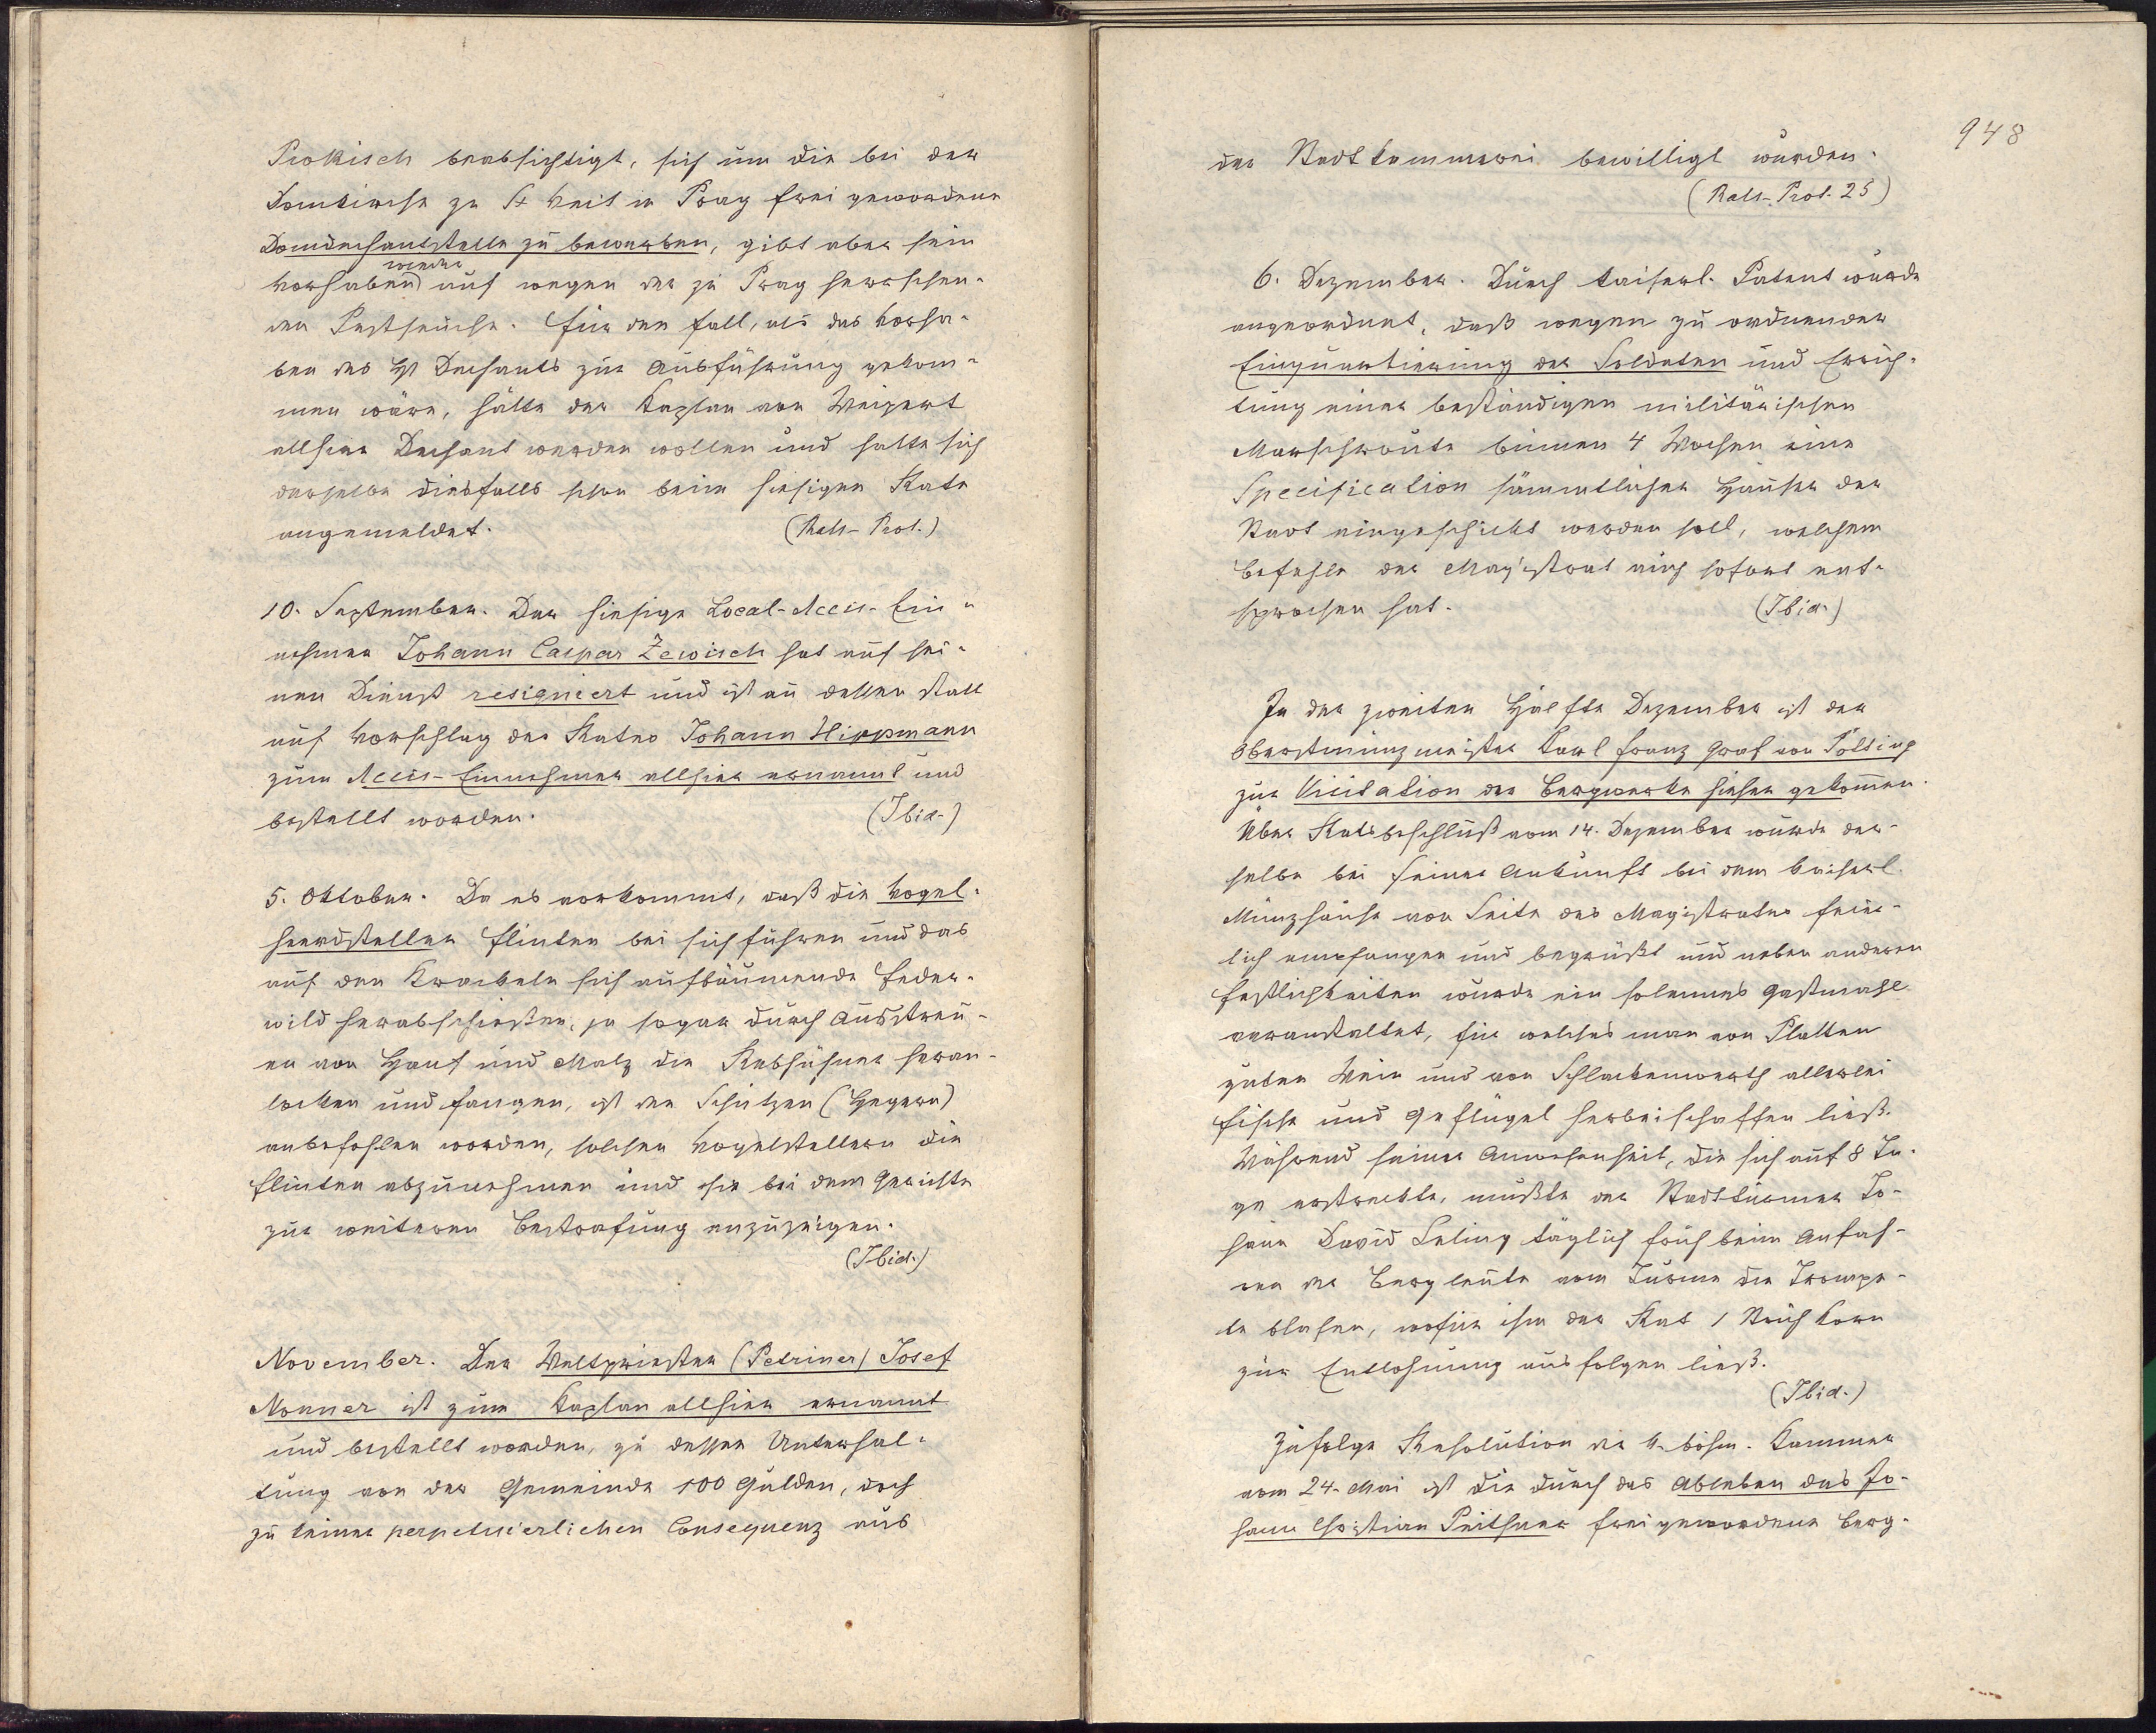 Prokisch beabsichtigt, sich um die bei der
Domkirche zu St Veit in Prag frei gewordene
Domdechantstelle zu bewerben, gibt aber sein
wieder
Vorhaben auf wegen der zu Prag herrschen-
den Pestseuche. Für den Fall, als das Vorha-
ben des H Dechants zur Ausführung gekom-
men wäre, hätte der Kaplan von Weipert
allhier Dechant werden wollen und hatte sich
derselbe diesfalls schon beim hiesigen Rate
angemeldet. (Rats-Prot.)
10. September. Der hiesige Local-Accis-Ein-
nehmer Johann Caspar Zewisch hat auf sei-
nen Dienst resigniert und ist an dessen statt
auf Vorschlag des Rates Johann Hippmann
zum Accis-Einnehmer allhier ernannt und
bestellt worden. (Ibid.)
5. Oktober. Da es vorkommt, daß die Vogel-
heerdsteller Flinten bei sich führen und das
auf den Krackeln sich aufbäumende Feder-
wild herabschießen, ja sogar durch Ausstreu-
en von Hanf und Malz die Rebhühner heran-
locken und fangen, ist den Schützen (Hegern)
anbefohlen worden, solchen Vogelstellern die
Flinten abzunehmen und sie bei dem Gerichte
zur weiteren Bestrafung anzuzeigen.
(Ibid.)
November. Der Weltpriester (Petriner) Josef
Nonner ist zum Kaplan allhier ernannt
und bestellt worden, zu dessen Unterhal-
tung von der Gemeinde 100 Gulden, doch
zu keiner perpetuierlichen Consequenz aus
948
der Stadtkammerei bewilligt wurden.
(Rats-Prot. 25)
6. Dezember. Durch kaiserl. Patent wurde
angeordnet, daß wegen zu ordnender
Einquartierung der Soldaten und Errich-
tung einer beständigen militärischen
Marschroute binnen 4 Wochen eine
Specification sämmtlicher Häuser der
Stadt eingeschickt werden soll, welchem
Befehle der Magistrat auch sofort ent-
sprochen hat. (Ibid.)
In der zweiten Hälfte Dezember ist der
Oberstmünzmeister Karl Franz Graf von Pötting
zur Visitation der Bergwerke hieher gekommen.
Über Ratsbeschluß vom 14. Dezember wurde der-
selbe bei seiner Ankunft bei dem kaiserl.
Münzhause von Seite des Magistrates feier-
lich empfangen und begrüßt und neben anderen
Festlichkeiten wurde ein solennes Gastmahl
veranstaltet, für welches man von Platten
guten Wein und von Schlackenwerth allerlei
Fische und Geflügel herbeischaffen ließ.
Während seiner Anwesenheit, die sich auf 8 Ta-
ge erstreckte, mußte der Stadttürmer Jo-
hann David Seling täglich früh beim Anfah-
ren der Bergleute vom Turme die Trompe-
te blasen, wofür ihm der Rat 1 Strich Korn
zur Entlohnung ausfolgen ließ.
(Ibid.)
Zufolge Resolution der k. böhm. Kammer
vom 24. Mai ist die durch das Ableben des Jo-
hann Christian Peithner frei gewordene Berg-